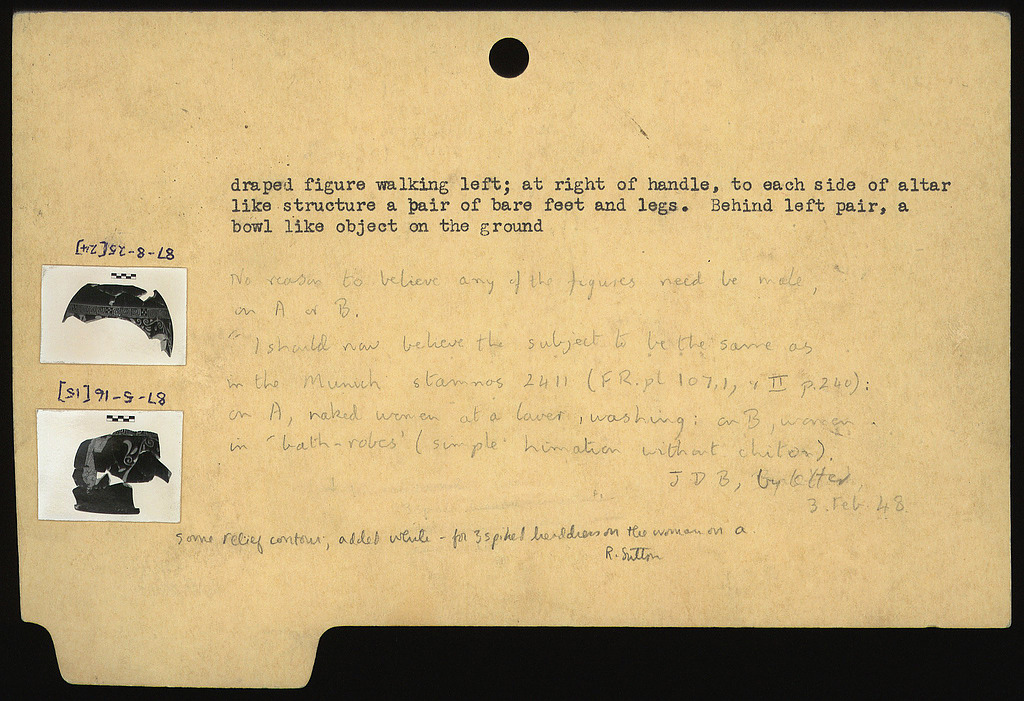 draped figure walking left; at right of handle, to each side of altar
like structure a pair of bare feet and legs. Behind left pair, a
bowl like object on the ground
87-8-25[24]
No reason to believe any of the figures need be male,
on A or B.
"I should now believe the subject to be the same as
in the Munich stamnos 2411 (FR. pl 107,1, & II p.240):
on A, naked women at a laver, washing: on B, women
in 'bath-robes' (simple himation without chiton).
J D B, by letter,
3. Feb. 48.
87-5-16[15]
Some relief contour, added white - for 3 spiked headdress on the woman on a.
R. Sutton